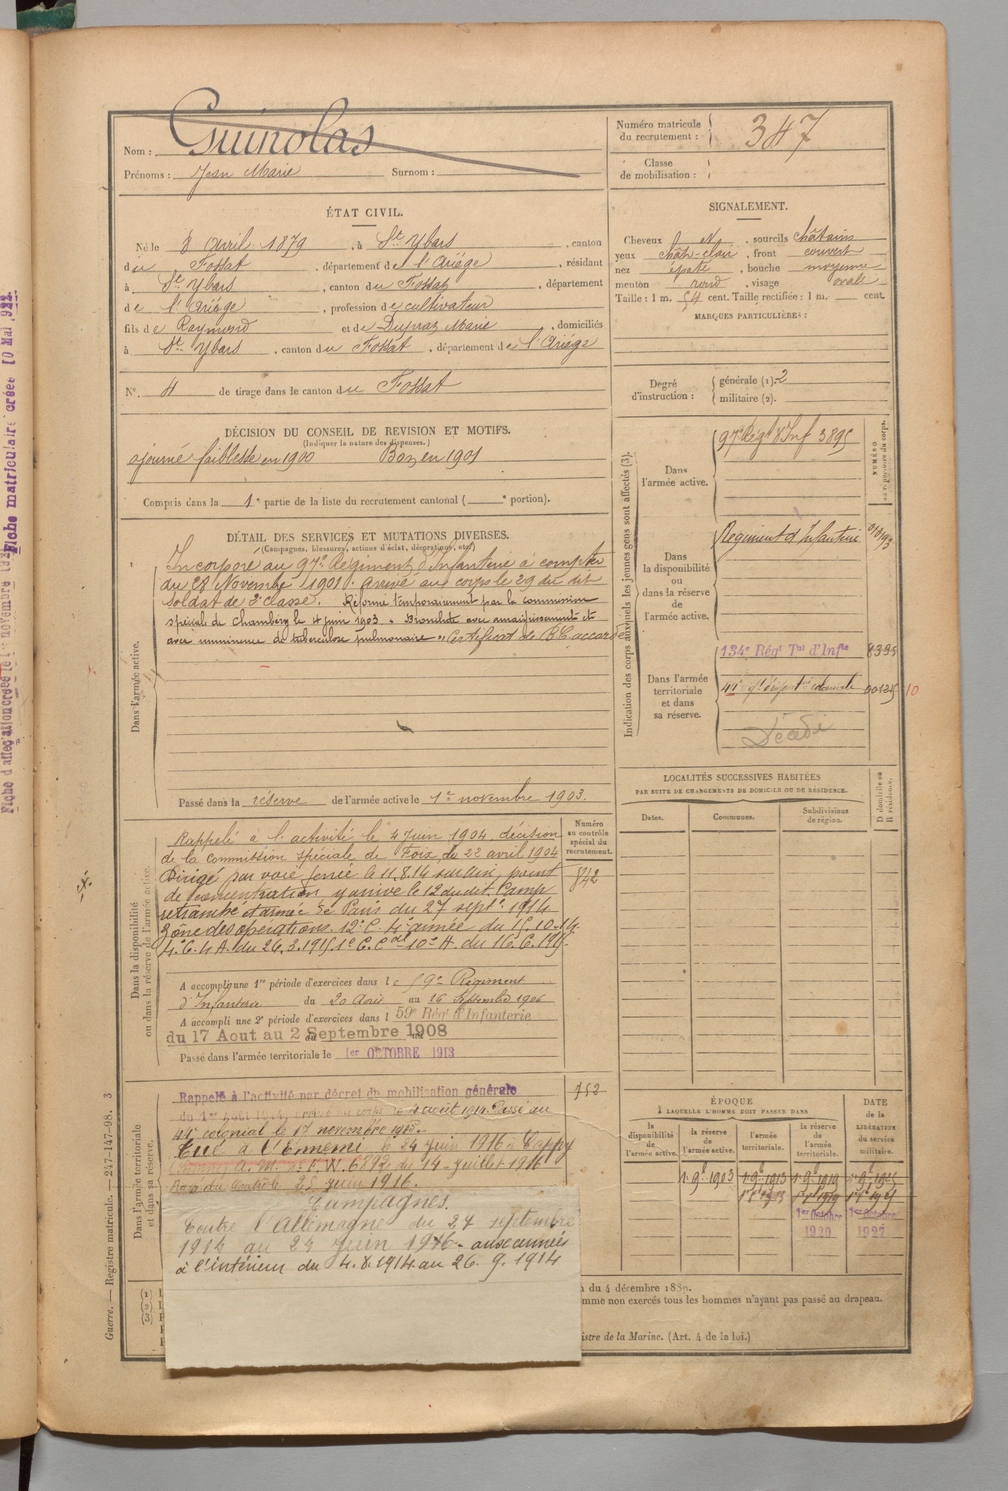 Nom : Guinolas
Prénoms : Jean Marie Surnom :
Numéro matricule du recrutement : 347
Classe de mobilisation :
ÉTAT CIVIL.
Né le 8 avril 1879, à St Ybars, canton
du Fossat, département de l'Ariège, résidant
à St Ybars, canton du Fossat, département
de l'Ariège, profession de cultivateur
fils de Raymond et de Dupraz Marie, domiciliés
à St Ybars, canton du Fossat, département de l'Ariège
N° 4 de tirage dans le canton du Fossat
SIGNALEMENT.
Cheveux N, sourcils châtains
yeux chât-clair, front couvert
nez épaté, bouche moyenne
menton rond, visage ovale
Taille : 1 m. 54 cent. Taille rectifiée : 1 m. cent.
MARQUES PARTICULIÈRES :
Degré d'instruction : générale (1). 2
militaire (2).
DÉCISION DU CONSEIL DE REVISION ET MOTIFS.
(Indiquer la nature des dispenses.)
ajourné faiblesse en 1900 Bon en 1901
Compris dans la 1e partie de la liste du recrutement cantonal ( e portion).
DÉTAIL DES SERVICES ET MUTATIONS DIVERSES.
(Campagnes, blessures, actions d'éclat, décorations, etc.)
Dans l'armée active.
Incorporé au 97e Régiment d'Infanterie à compter
du 28 Novembre 1901. Arrivé au corps le 29 du dit
soldat de 2e classe. Réformé temporairement par la commission
spéciale de Chambéry le 4 juin 1903. « Bronchite avec amaigrissement et
avec imminence de tuberculose pulmonaire » Certificat de BC accordé
Passé dans la réserve de l'armée active le 1er novembre 1903.
Dans la disponibilité ou dans la réserve de l'armée active.
Numéro au contrôle spécial du recrutement.
842
Rappelé à l'activité le 4 Juin 1904, décision
de la commission spéciale de Foix du 22 avril 1904
Dirigé par voie ferrée le 11.8.14 sur point
de concentration y arrive le 12 du dit. Camp
retranché d'armée de Paris du 27 sept. 1914
Zône des opérations. 12e C. 4e armée du 15.10.14.
4e C. 4 A. du 26.3.1915. 1er C. Cal 10e A. du 16.6.1915.
A accompli une 1re période d'exercices dans le 59e Régiment
d'Infanterie du 20 Août au 16 Septembre 1906
A accompli une 2e période d'exercices dans l 59e Régt d'Infanterie
du 17 Aout au 2 Septembre 1908
Passé dans l'armée territoriale le 1er OCTOBRE 1913
Dans l'armée territoriale et dans sa réserve.
752
Rappelé à l'activité par décret de mobilisation générale
du 1er Août 1914, arrivé au corps le 4 août 1914. Passé au
44e colonial le 17 novembre 1915.
Tué à l'Ennemi le 24 Juin 1916 à Cappy
14 Juillet 1916
Rayé du Contrôle 25 juin 1916.
Campagnes.
Contre l'Allemagne du 27 septembre
1914 au 24 Juin 1916 - aux armées
à l'intérieur du 4.8.1914 au 26.9.1914
Indication des corps auxquels les jeunes gens sont affectés (3).
NUMÉRO au répertoire du corps.
Dans l'armée active.
97e Régt d'Inf 3895
Dans la disponibilité ou dans la réserve de l'armée active.
Régiment d'Infanterie
Dans l'armée territoriale et dans sa réserve.
134e Régt Tal d'Infie 8395
Décédé
LOCALITÉS SUCCESSIVES HABITÉES
PAR SUITE DE CHANGEMENTS DE DOMICILE OU DE RÉSIDENCE.
Dates. Communes. Subdivisions de région. D domicile ou R résidence.
ÉPOQUE
À LAQUELLE L'HOMME DOIT PASSER DANS
DATE de la LIBÉRATION du service militaire.
la disponibilité de l'armée active. la réserve de l'armée active. l'armée territoriale. la réserve de l'armée territoriale.
1er Octobre 1920
1er Octobre 1927
n du 4 décembre 1889.
mme non exercés tous les hommes n'ayant pas passé au drapeau.
istre de la Marine. (Art. 4 de la loi.)
Guerre. — Registre matricule. — 247-147-98. 3
Fiche matriculaire créée 10 Mai 1922